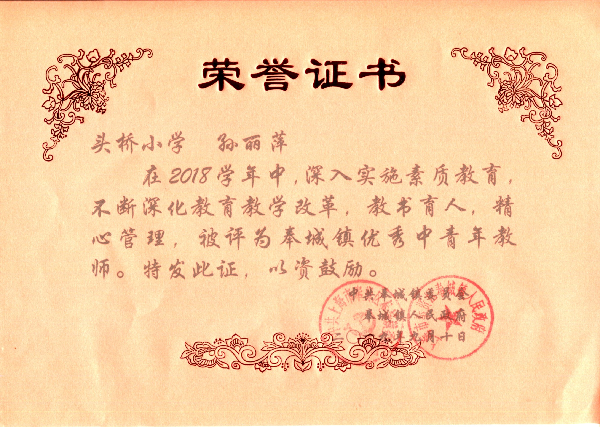 荣誉证书
头桥小学 孙丽萍
在2018学年中,深入实施素质教育,
不断深化教育教学改革,教书育人,精
心管理,被评为奉城镇优秀中青年教
师。特发此证,以资鼓励。
中共奉城镇委员会
奉城镇人民政府
年九月十日